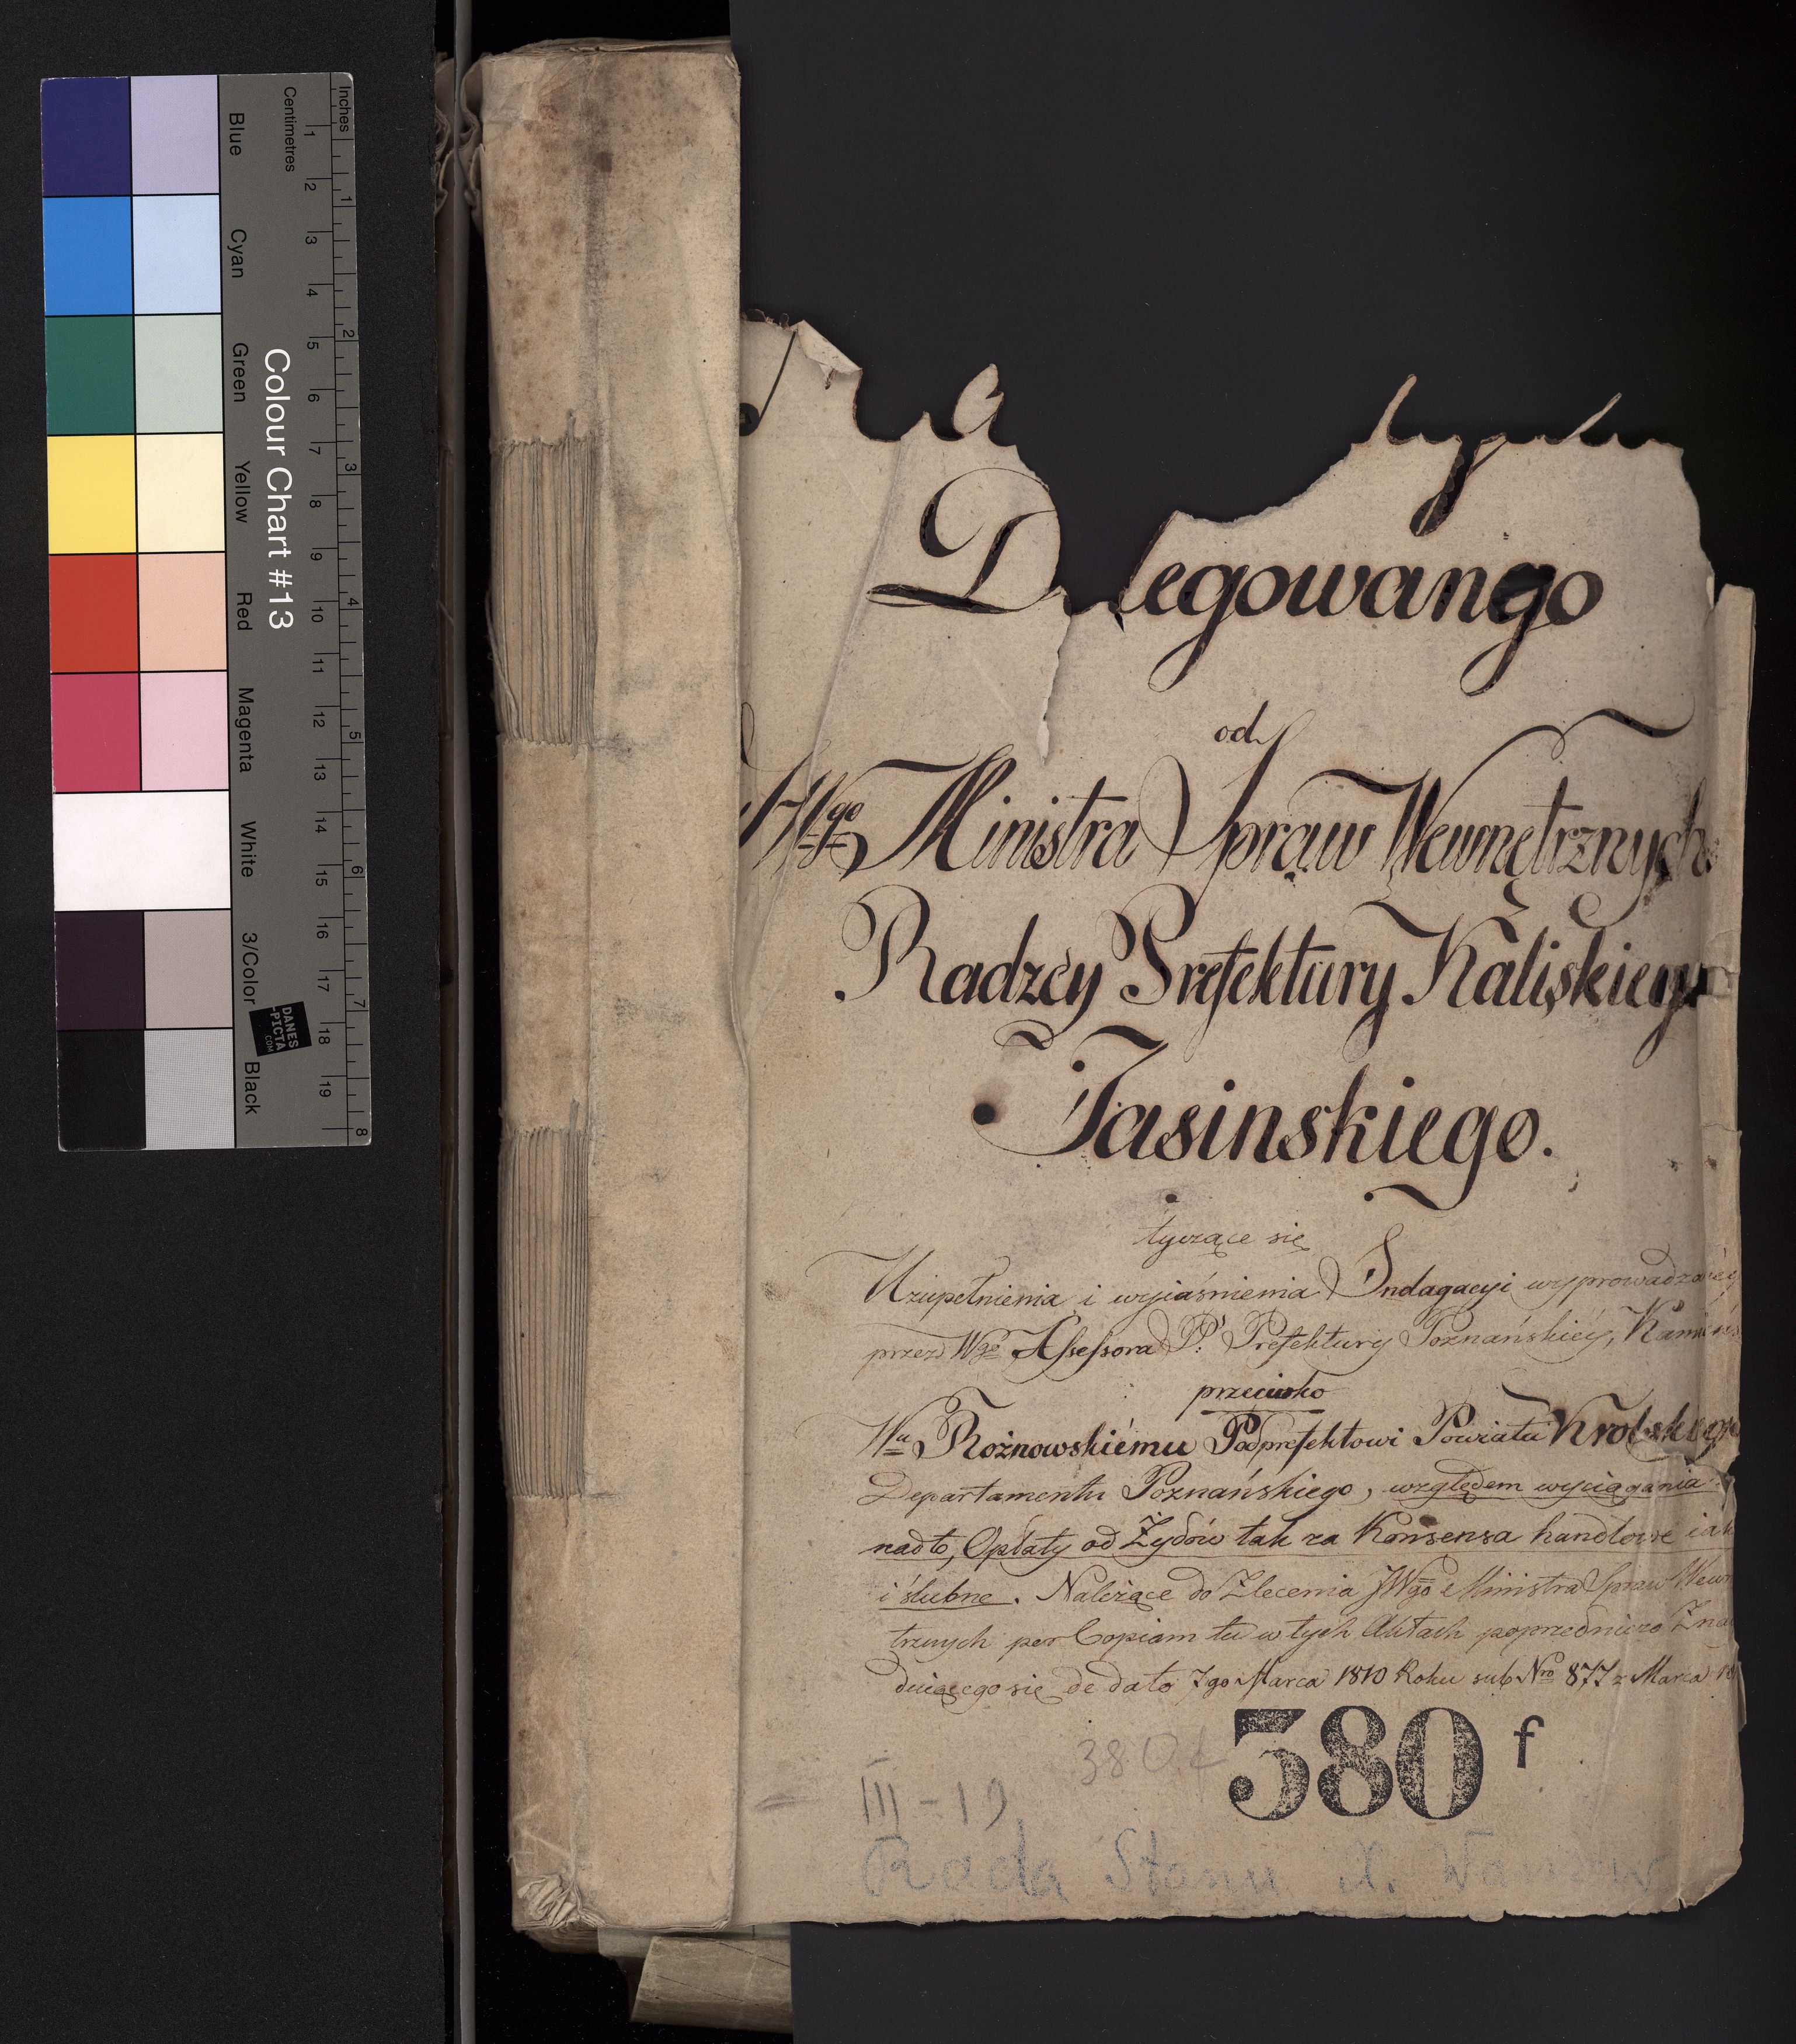 Inches
Centimetres
1 2 3 4 5 6 7 8 9 10 11 12 13 14 15 16 17 18 19
1 2 3 4 5 6 7 8
Colour Chart #13
Blue
Cyan
Green
Yellow
Red
Magenta
White
3/Color
Black
DANES
-PICTA
.COM
Delegowango
od
JWgo Ministra Spraw Wewnętrznych
Radzcy Prefektury Kaliskiego
Jasinskiego.
tyczące się
Uzupełnienia i wyiaśnienia Indagacyi wyprowadzonéy
przez Wgo Assessora P: Prefektury Poznańskiéy, Kamińs
przeciwko
Wu Rożnowskiému Podprefektowi Powiatu Krobskiego
Departamentu Poznańskiego, względem wyciągania
nadto, Opłaty od Żydów tak za Konsensa handlowe iak
i ślubne. Należące do Zlecenia JWgo Ministra Spraw Wewn
trznych per Copiam tu w tych Aktach poprzedniczo Zna
duiącego się de dato 7go Marca 1810 Roku sub Nro 877 z Marca 18
380 f
380 f
III - 19
Rada Stanu X. Warszaw